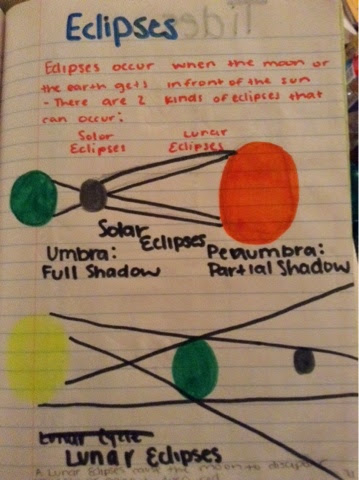 Eclipses
Eclipses occur when the moon or
the earth gets in front of the sun
- There are 2 kinds of eclipses that
can occur:
Solar Eclipses
Lunar Eclipses
Solar Eclipses
Umbra:
Full Shadow
Penumbra:
Partial Shadow
Lunar Cycle
Lunar Eclipses
A Lunar Eclipse the moon to